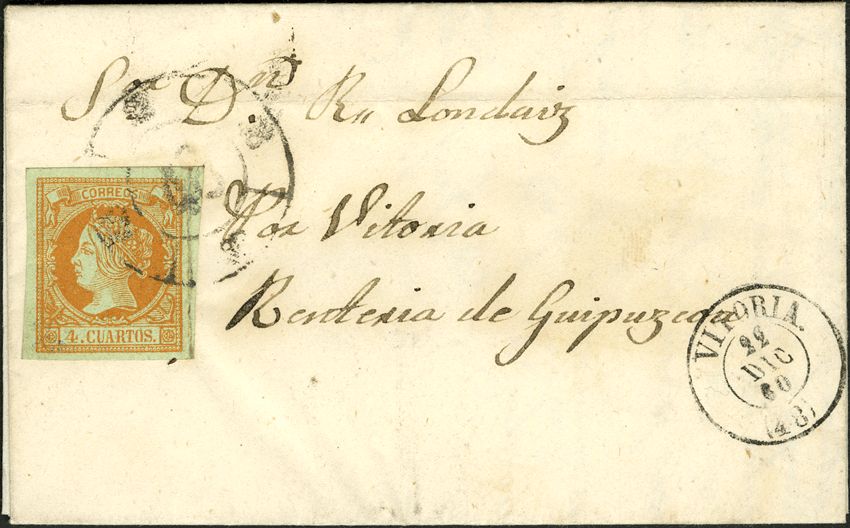 Sr. Dn. Rn Londaiz
Por Vitoria
Renteria de Guipuzcoa
CORREOS
4. CUARTOS.
VITORIA.
22
DIC
60
(48)